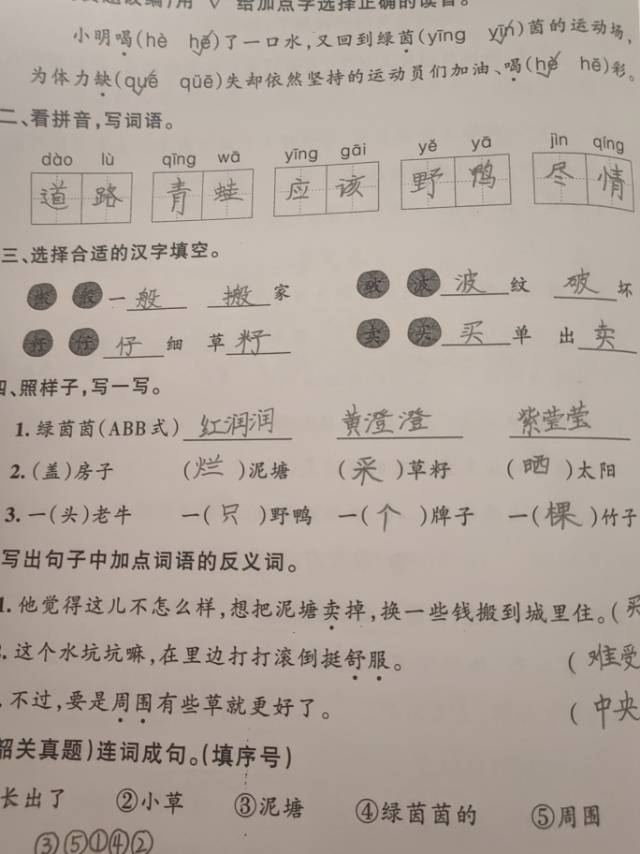 给加点字选择正确的读音。
小明喝(hè hē)了一口水,又回到绿茵(yīng yīn)茵的运动场,
为体力缺(quē qüē)失却依然坚持的运动员们加油、喝(hè hē)彩。
二、看拼音,写词语。
dào lù qīng wā yīng gāi yě yā jìn qíng
道路 青蛙 应该 野鸭 尽情
三、选择合适的汉字填空。
搬 般 一般 搬家 破 波 波纹 破坏
籽 仔 仔细 草籽 卖 买 买单 出卖
四、照样子,写一写。
1. 绿茵茵(ABB式) 红润润 黄澄澄 紫莹莹
2. (盖)房子 (烂)泥塘 (采)草籽 (晒)太阳
3. 一(头)老牛 一(只)野鸭 一(个)牌子 一(棵)竹子
写出句子中加点词语的反义词。
1. 他觉得这儿不怎么样,想把泥塘卖掉,换一些钱搬到城里住。(买
. 这个水坑坑嘛,在里边打打滚倒挺舒服。 (难受
. 不过,要是周围有些草就更好了。 (中央
韶关真题)连词成句。(填序号)
长出了 ②小草 ③泥塘 ④绿茵茵的 ⑤周围
③⑤①④②